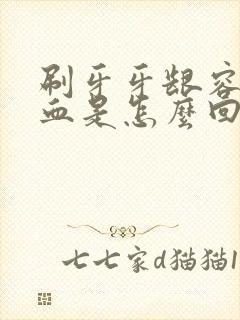 刷牙牙龈容
血是怎麼回
七七家d猫猫1